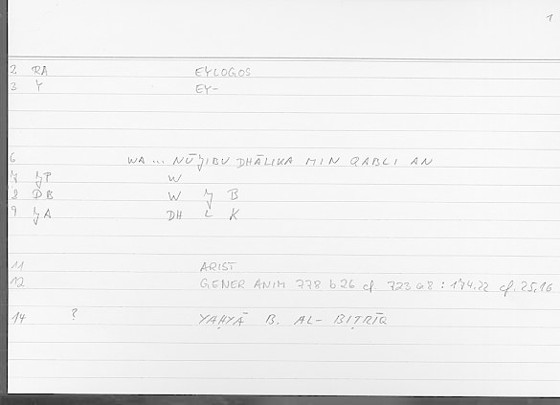 1
2 RA EYLOGOS
3 Y EY-
6 WA ... NŪǦIBU DHĀLIKA MIN QABLI AN
7 ǦP W
8 DB W Ǧ B
9 ǦA DH L K
11 ARIST
12 GENER ANIM 778 b 26 cf 723 a 8 : 174.22 cf. 25,16
14 ? YAḤYĀ B. AL-BIṬRĪQ